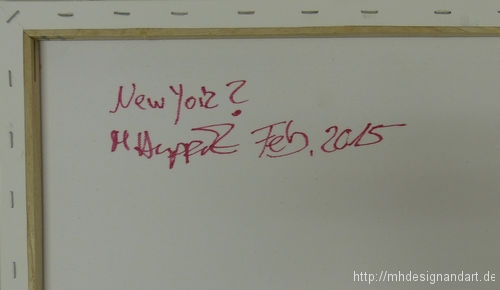 New York?
M Huppertz Feb. 2015
http://mhdesignandart.de